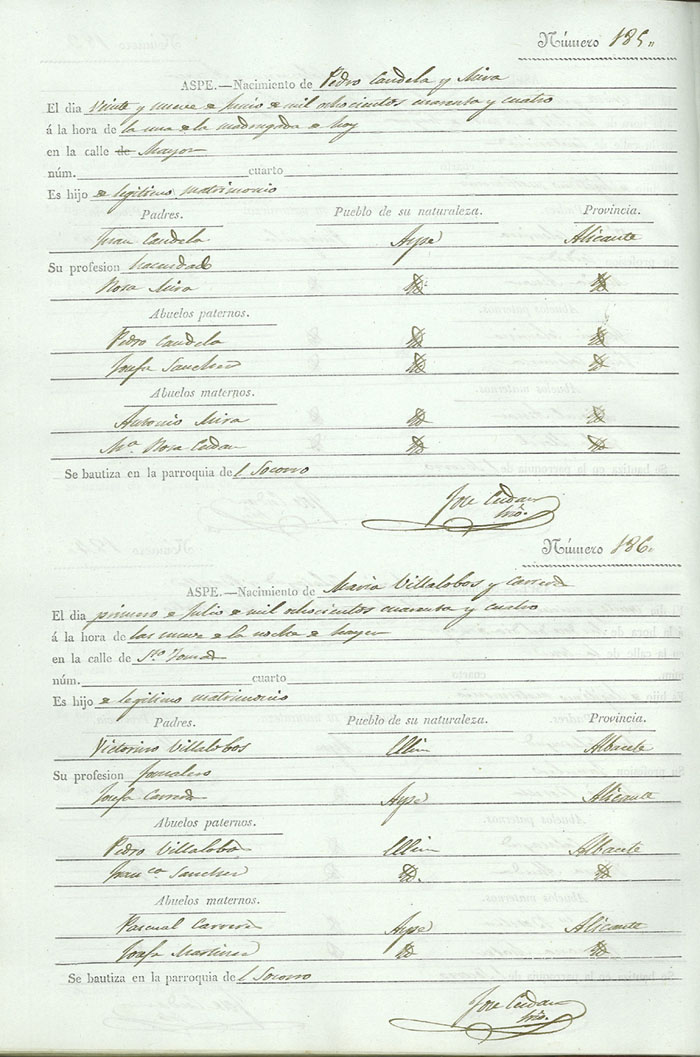 Número 185„
ASPE.—Nacimiento de Pedro Candela y Mira
El dia veinte y nueve de Junio de mil ochocientos cuarenta y cuatro
á la hora de la una de la madrugada de hoy
en la calle de Mayor
núm. cuarto
Es hijo de legitimo matrimonio
Padres. Pueblo de su naturaleza. Provincia.
Fran Candela Aspe Alicante
Su profesion hacendado
Rosa Mira
Abuelos paternos.
Pedro Candela
Josefa Sanchez
Abuelos maternos.
Antonio Mira
Mª Rosa
Se bautiza en la parroquia de l Socorro
Jose
Número 186„
ASPE.—Nacimiento de Maria Villalobos y Carrera
El dia primero de Julio de mil ochocientos cuarenta y cuatro
á la hora de las nueve de la noche de hayer
en la calle de Sto Tomas
núm. cuarto
Es hijo de legitimo matrimonio
Padres. Pueblo de su naturaleza. Provincia.
Victorino Villalobos Ellin Albacete
Su profesion Jornalero
Josefa Carrera Aspe Alicante
Abuelos paternos.
Pedro Villalobos Ellin Albacete
Franca Sanchez
Abuelos maternos.
Pascual Carrera Aspe Alicante
Josefa Martinez
Se bautiza en la parroquia de l Socorro
Jose